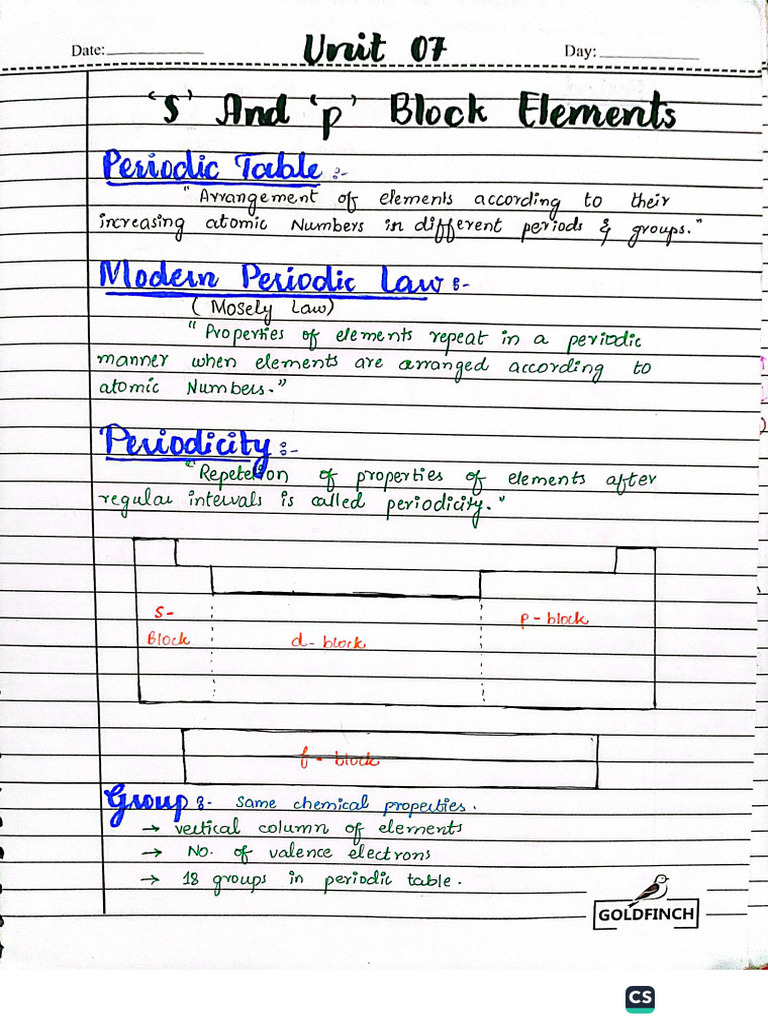 Date:
Unit 07
Day:
's' And 'p' Block Elements
Periodic Table :-
"Arrangement of elements according to their
increasing atomic Numbers in different periods & groups."
Modern Periodic Law :-
(Mosely Law)
"Properties of elements repeat in a periodic
manner when elements are arranged according to
atomic Numbers."
Periodicity :-
"Repetetion of properties of elements after
regular intervals is called periodicity."
s-
Block
d-block
p-block
f-block
Group :- Same chemical properties.
→ vertical column of elements
→ No. of valence electrons
→ 18 groups in periodic table.
GOLDFINCH
CS